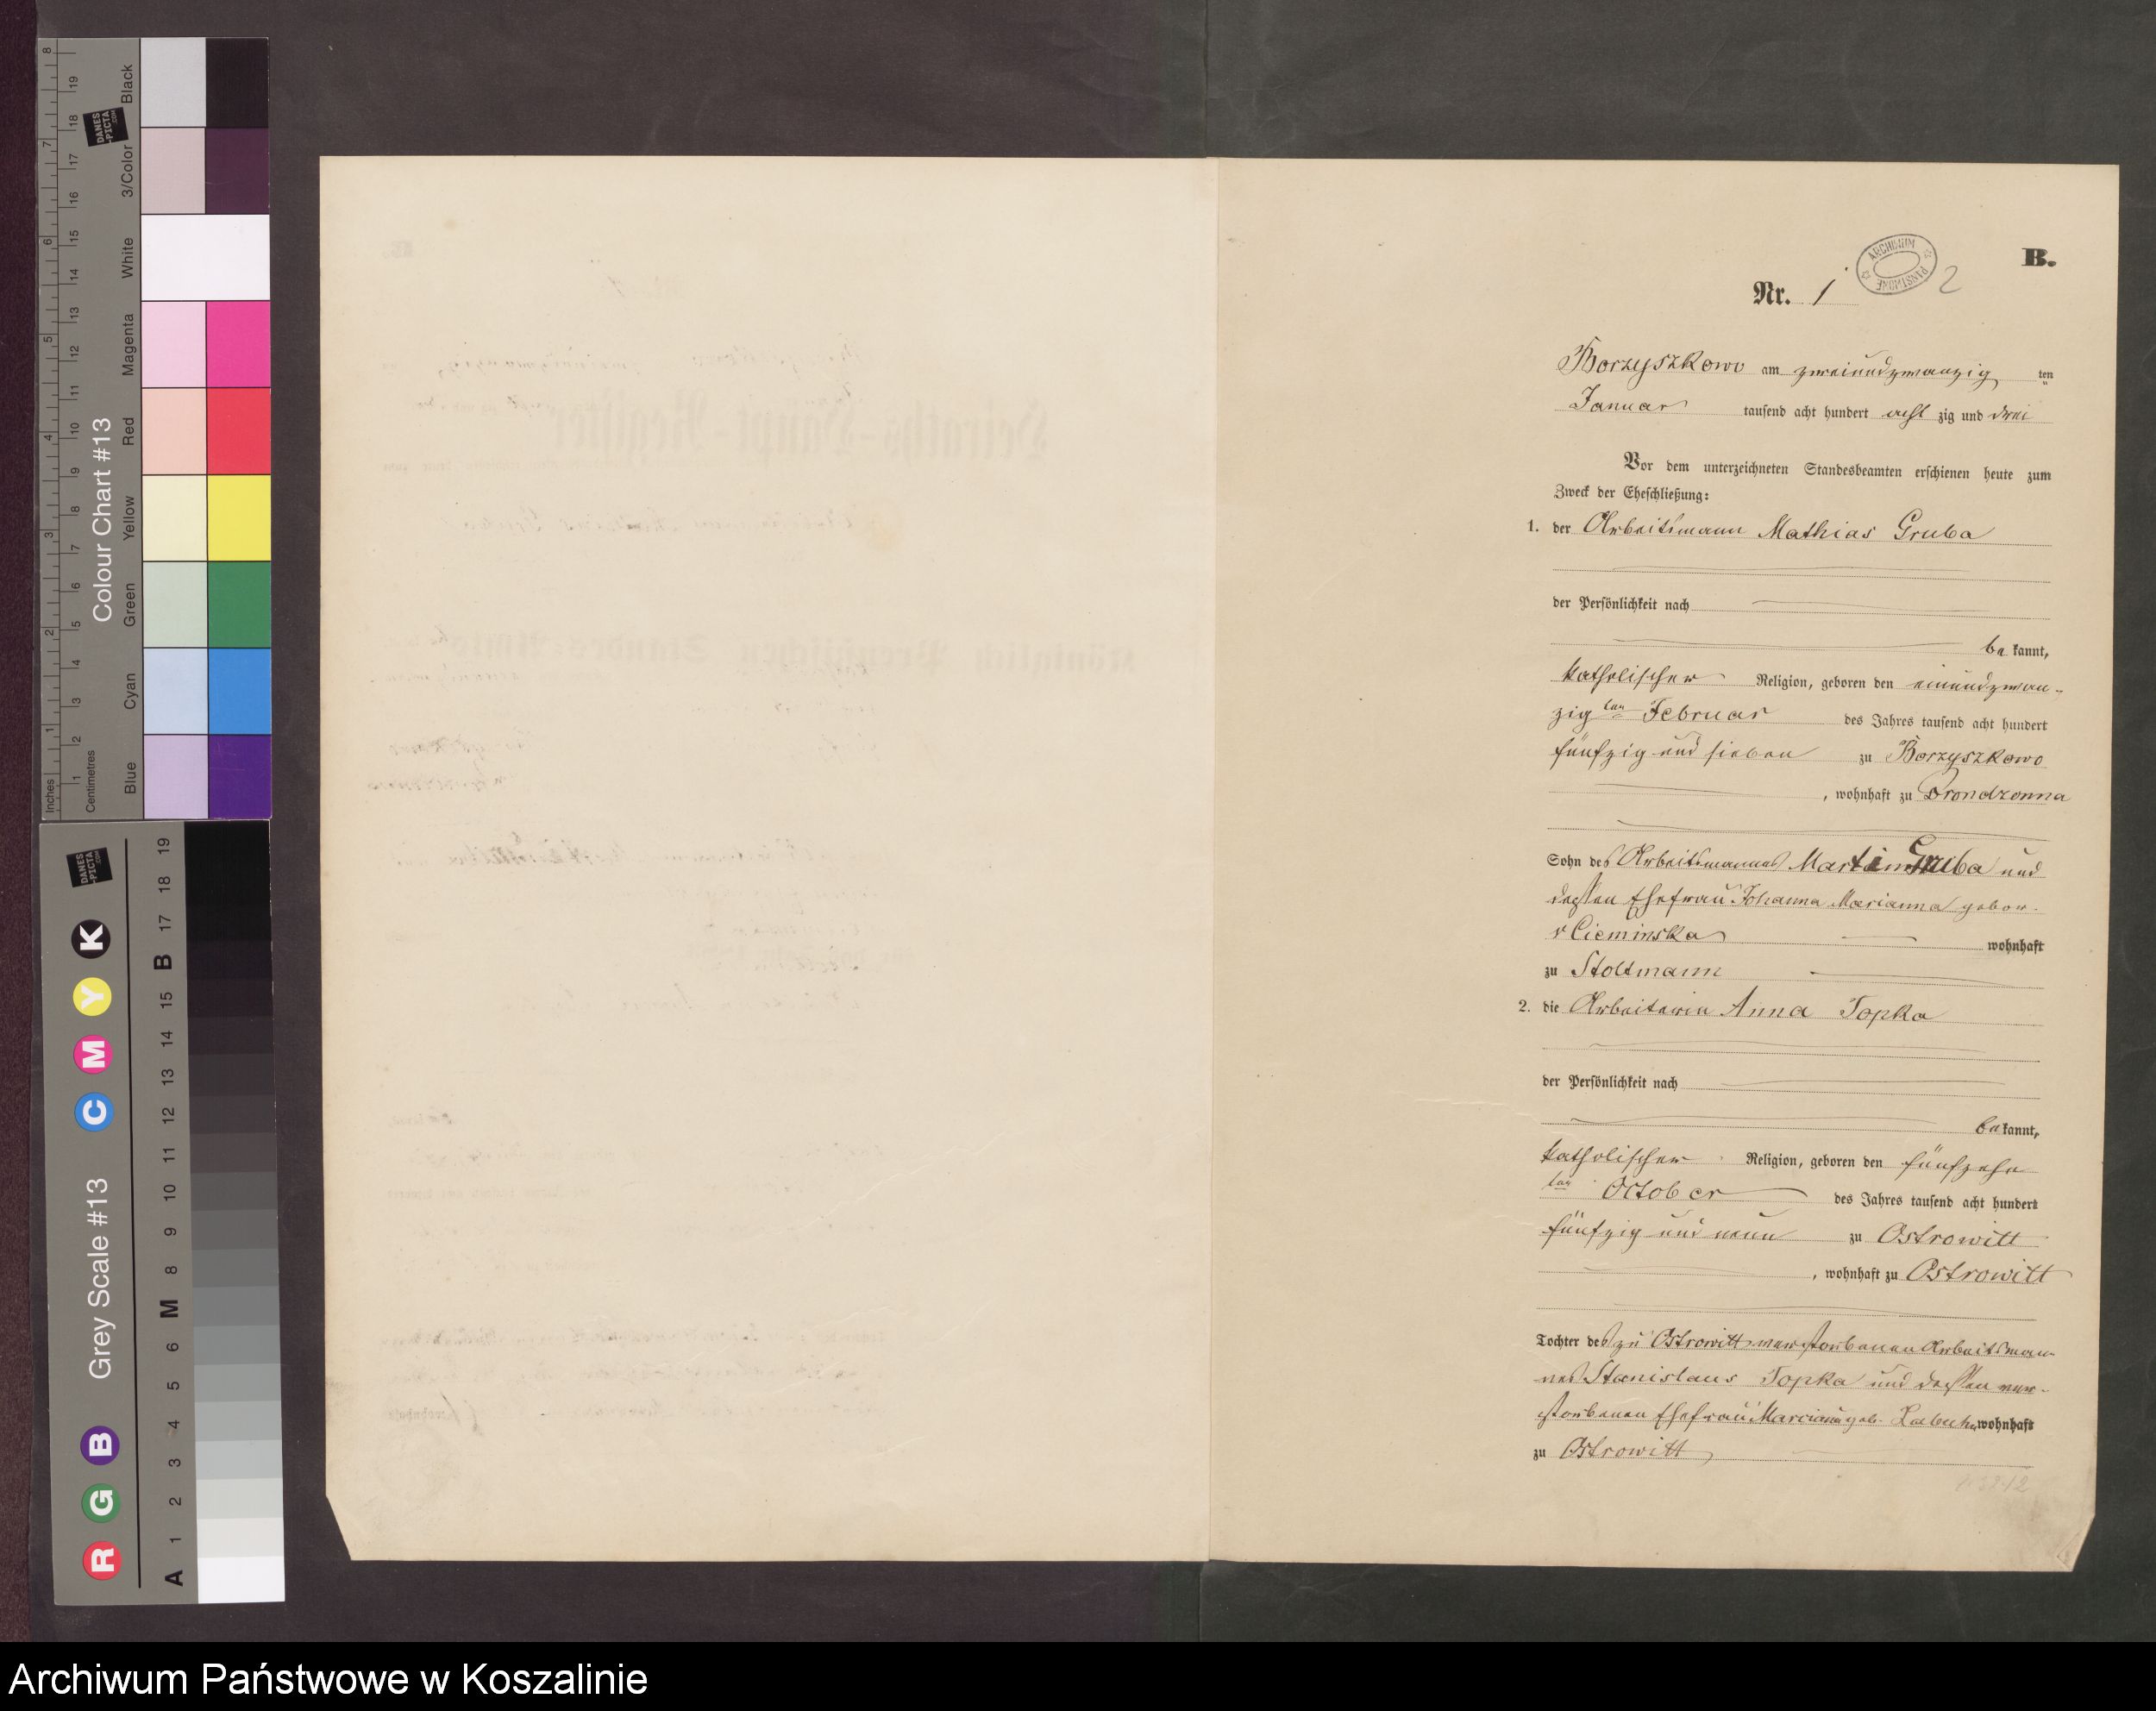 B.
Nr. 1
ARCHIWUM PAŃSTWOWE
2
Borzyszkowo am zweiundzwanzig ten
Januar tausend acht hundert acht zig und drei
Vor dem unterzeichneten Standesbeamten erschienen heute zum
Zweck der Eheschließung:
1. der Arbeitsmann Mathias Gruba
der Persönlichkeit nach
be kannt,
katholischer Religion, geboren den einundzwan-
zig ten Februar des Jahres tausend acht hundert
fünfzig und sieben zu Borzyszkowo
, wohnhaft zu Prondzonna
Sohn des Arbeitsmannes Martin Gruba und
dessen Ehefrau Johanna Marianna gebor.
v Cieminska wohnhaft
zu Stoltmann
2. die Arbeiterin Anna Topka
der Persönlichkeit nach
be kannt,
katholischer Religion, geboren den fünfzehn
ten October des Jahres tausend acht hundert
fünfzig und neun zu Ostrowitt
, wohnhaft zu Ostrowitt
Tochter des zu Ostrowitt verstorbenen Arbeitsman-
nes Stanislaus Topka und dessen ver-
storbenen Ehefrau Marciana geb. wohnhaft
zu Ostrowitt
Inches 1 2 3 4 5 6 7 8
Centimetres 1 2 3 4 5 6 7 8 9 10 11 12 13 14 15 16 17 18 19
Colour Chart #13
Blue Cyan Green Yellow Red Magenta White 3/Color Black
DANES-PICTA.COM
Grey Scale #13
R G B C M Y K
A 1 2 3 4 5 6 M 8 9 10 11 12 13 14 15 B 17 18 19
DANES-PICTA.COM
Archiwum Państwowe w Koszalinie